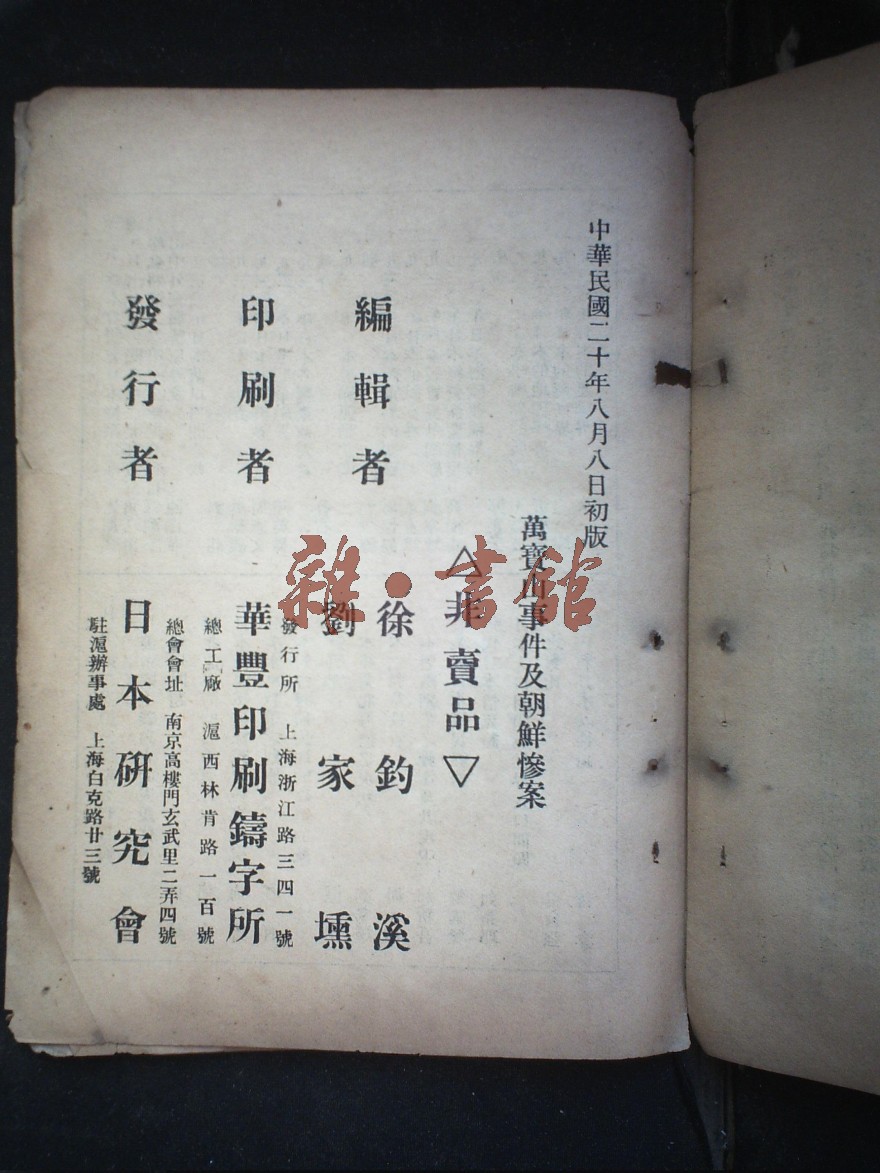 中華民國二十年八月八日初版
萬寶山事件及朝鮮慘案
△非賣品▽
編輯者 徐釣溪
劉家壎
印刷者 華豐印刷鑄字所
發行所 上海浙江路三四一號
總工廠 滬西林肯路一百號
發行者 日本研究會
總會會址 南京高樓門玄武里二弄四號
駐滬辦事處 上海白克路廿三號
雜·書館